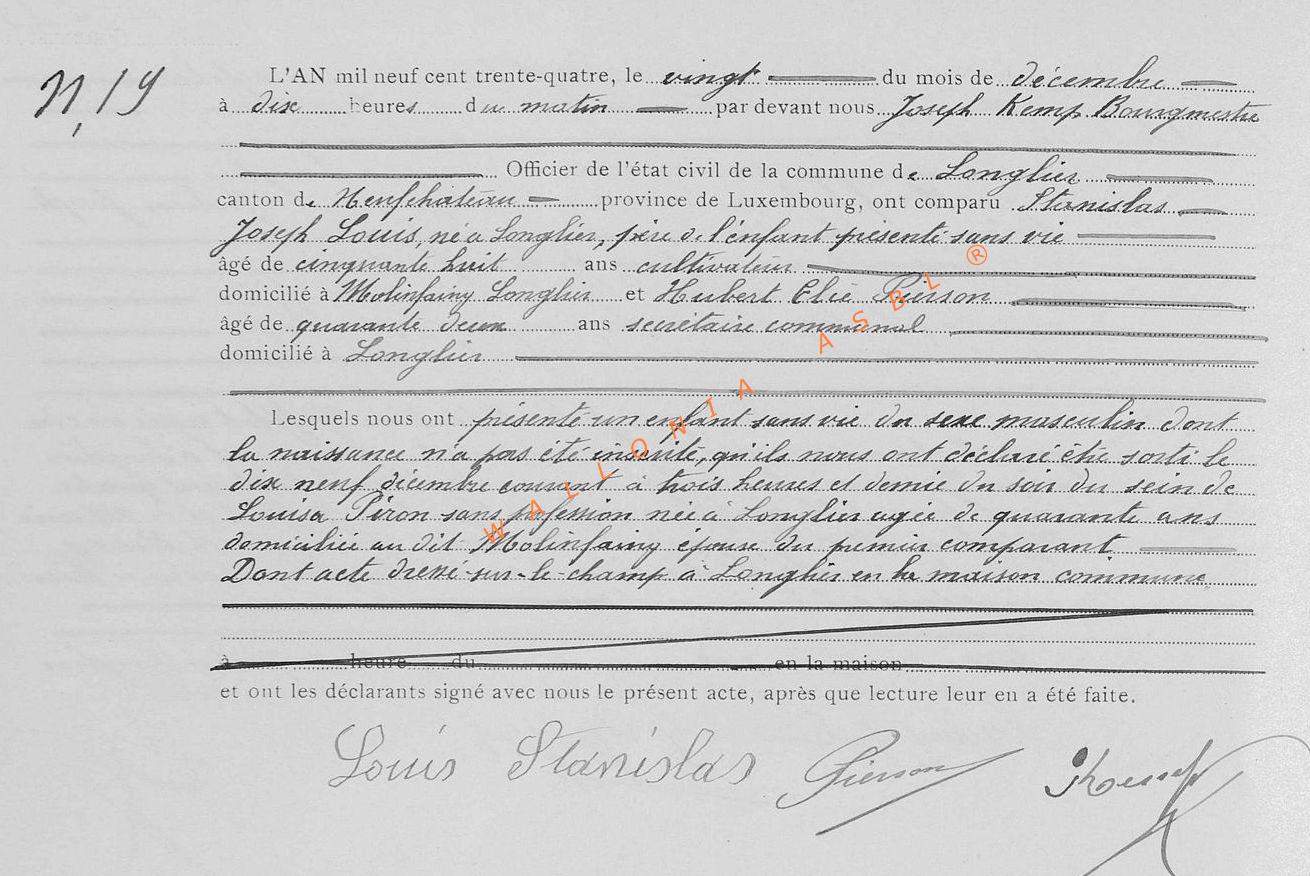 N, 19
L'AN mil neuf cent trente-quatre, le vingt du mois de décembre
à dix heures du matin par devant nous Joseph Kemp Bourgmestre
Officier de l'état civil de la commune de Longlier
canton de Neufchâteau province de Luxembourg, ont comparu Stanislas
Joseph Louis, né à Longlier, père de l'enfant présenté sans vie
âgé de cinquante huit ans cultivateur
domicilié à Molinfaing Longlier et Hubert Elie Pierson
âgé de quarante deux ans secrétaire communal
domicilié à Longlier
Lesquels nous ont présenté un enfant sans vie du sexe masculin dont
la naissance n'a pas été inscrite, qu'ils nous ont déclaré être sorti le
dix neuf décembre courant à trois heures et demie du soir du sein de
Louisa Piron sans profession née à Longlier agée de quarante ans
domiciliée au dit Molinfaing épouse du premier comparant
Dont acte dressé sur-le champ à Longlier en la maison commune
à heure du en la maison
et ont les déclarants signé avec nous le présent acte, après que lecture leur en a été faite.
Louis Stanislas Pierson JKemp
WALLONIA ASBL ®